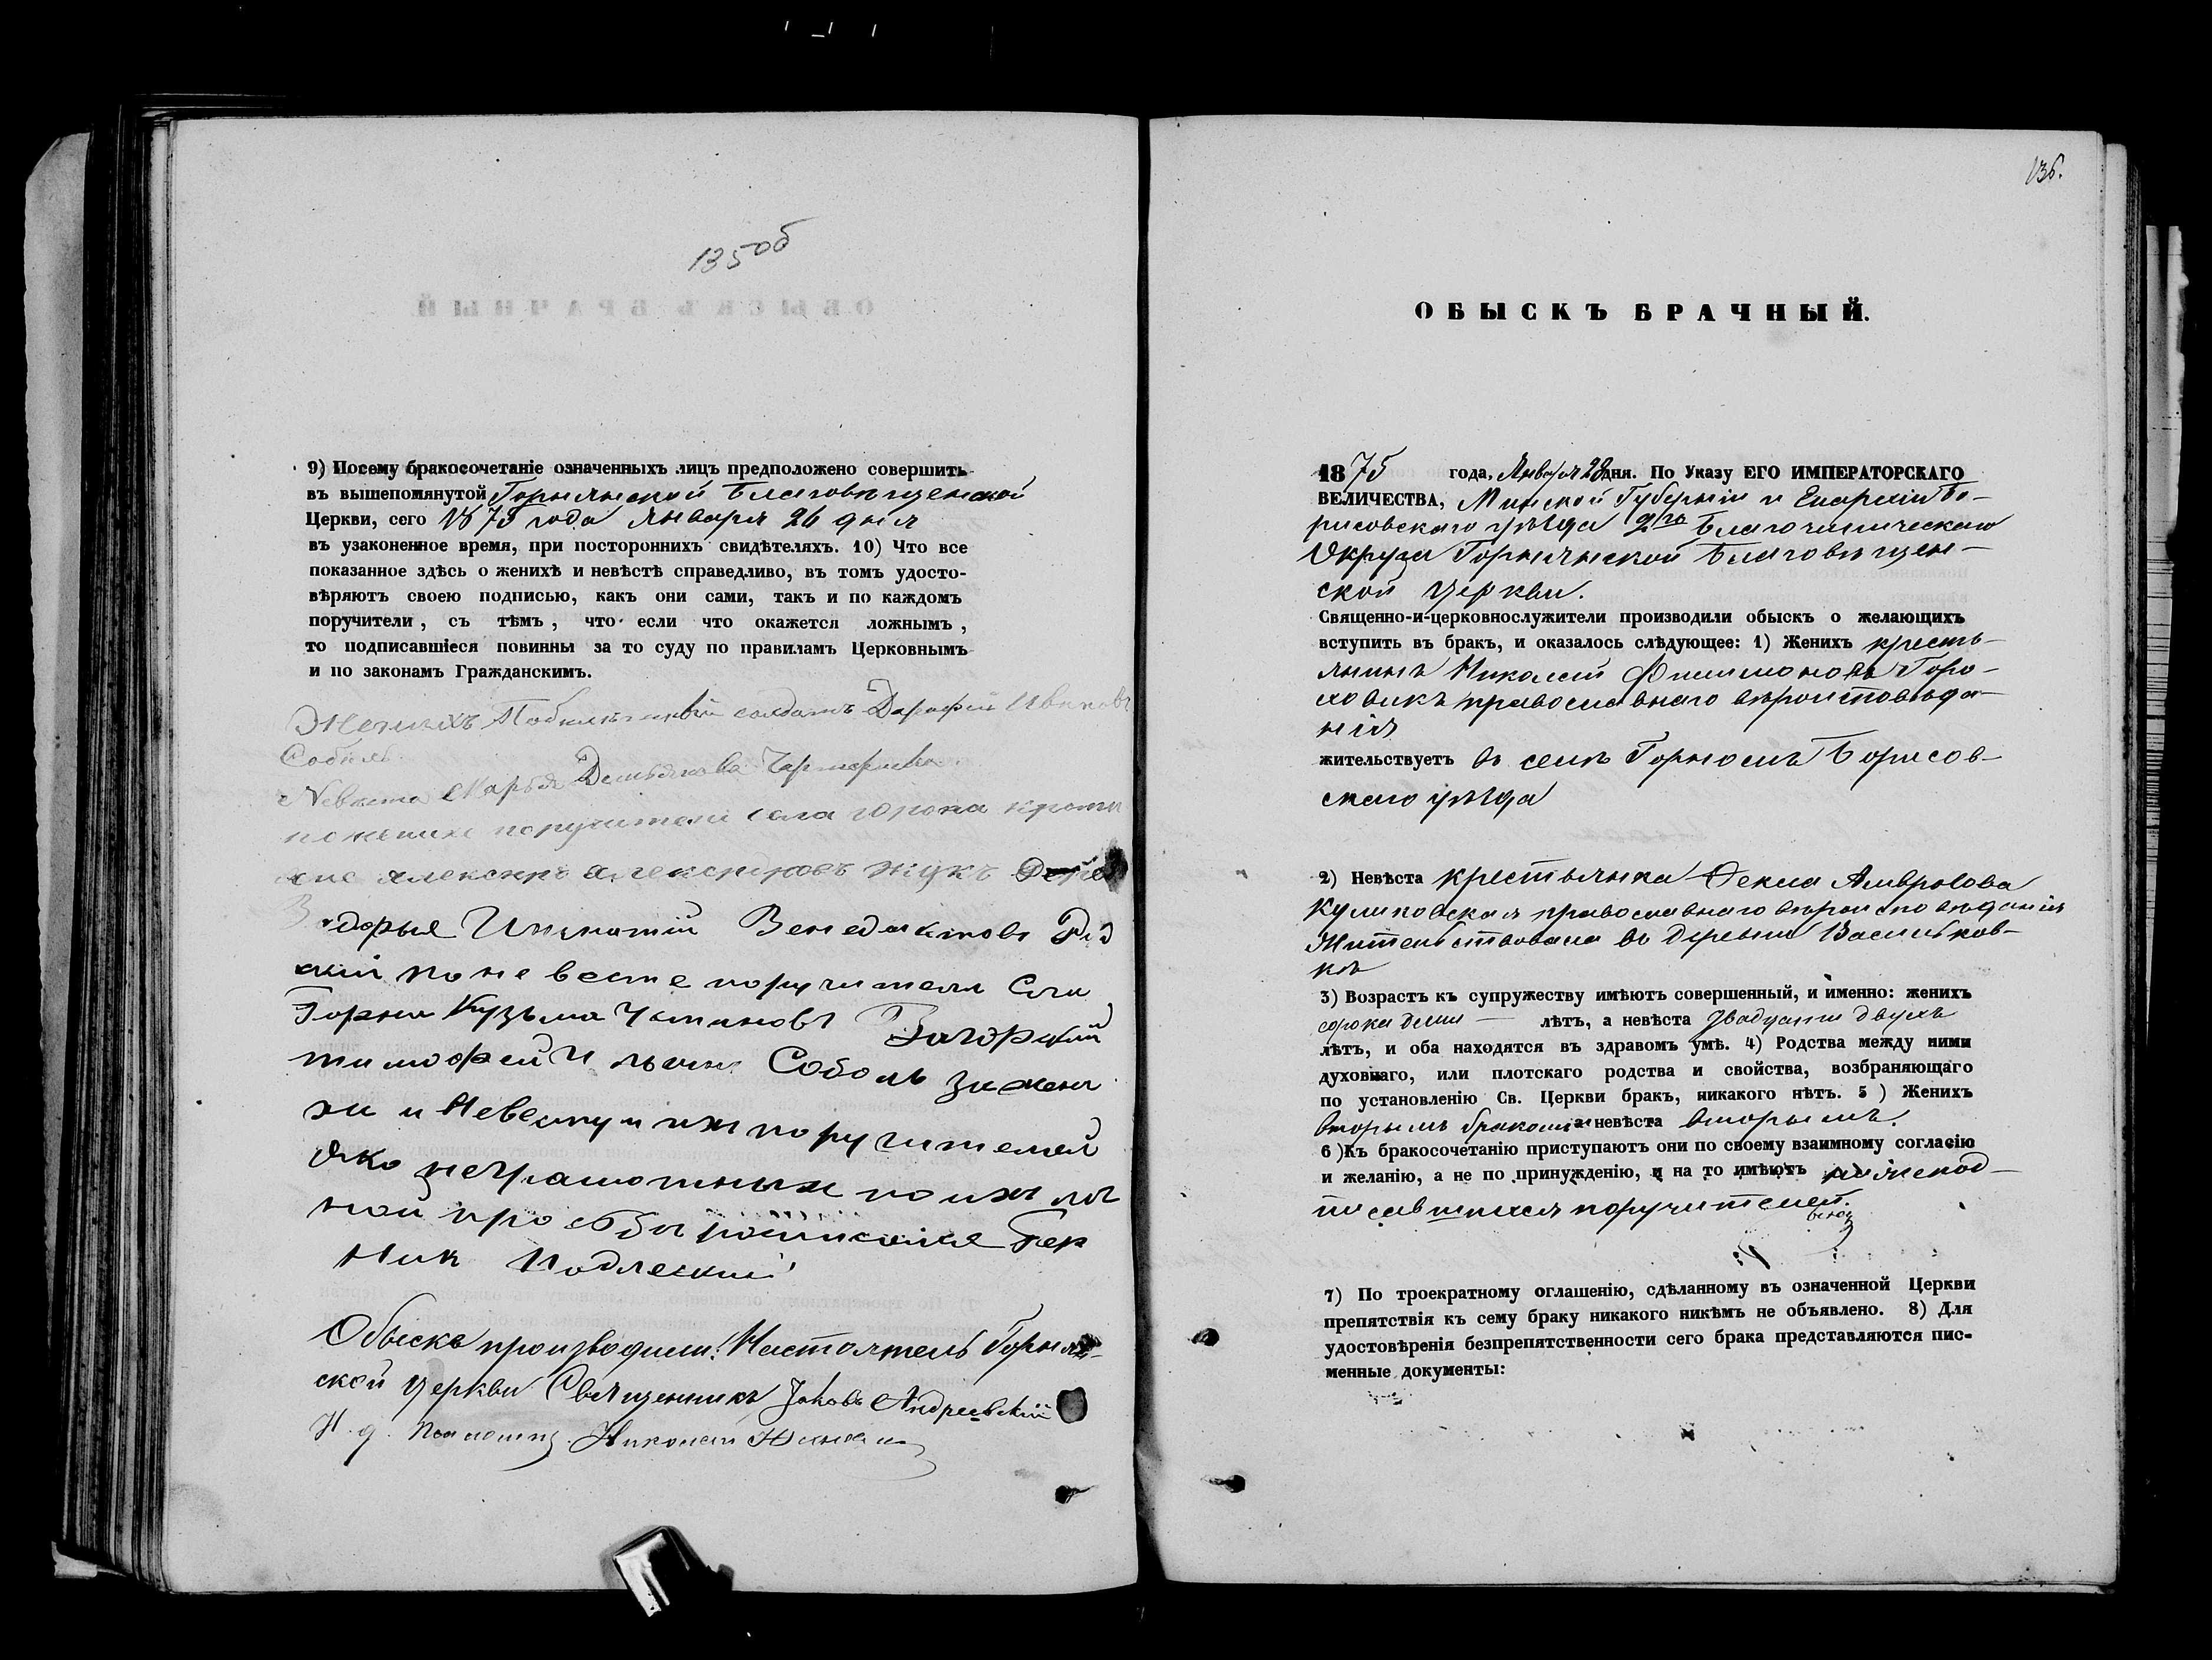 135об
9) Посему бракосочетаніе означенныхъ лицъ предположено совершить
въ вышепомянутой Горнянской Благовѣщенской
Церкви, сего 1875 года Января 26 дня
въ узаконенное время, при постороннихъ свидѣтеляхъ. 10) Что все
показанное здѣсь о женихѣ и невѣстѣ справедливо, въ томъ удосто-
вѣряютъ своею подписью, какъ они сами, такъ и по каждомъ
поручители, съ тѣмъ, что если что окажется ложнымъ,
то подписавшіеся повинны за то суду по правиламъ Церковнымъ
и по законамъ Гражданскимъ.
Женихъ солдатъ Дарофей Ивановъ
Соболь.
Невеста Марья Демьянова
по жениху поручители села горона
александровъ жукъ
Игнатій Венедиктовъ
по невесте поручители Села
Горна Кузьма Загорский
тимофей Ильинъ Соболь за жени
ха и Невесту и ихъ поручителей
яко неграмотныхъ по ихъ лич
ной прозбы росписался
Ник Подлеский
Обыскъ производили: Настоятель Горнян-
ской церкви Священникъ Іаковъ Андреевскій
И. д. Псаломщ. Николай
136.
ОБЫСКЪ БРАЧНЫЙ.
1875 года, Января 28 дня. По Указу ЕГО ИМПЕРАТОРСКАГО
ВЕЛИЧЕСТВА, Минской Губерніи и Епархіи Бо-
рисовскаго уѣзда 2го Благочинническаго
Округа Горнянской Благовѣщен-
ской церкви.
Священно-и-церковнослужители производили обыскъ о желающихъ
вступить въ бракъ, и оказалось слѣдующее: 1) Женихъ кресть-
янинъ Николай Филимоновъ Горо-
ховикъ православнаго вѣроисповѣда-
нія
жительствуетъ въ селѣ Горномъ Борисов-
скаго уѣзда
2) Невѣста крестьянка Фекла Амвросова
Куликовская православнаго вѣроисповѣданія
Жительствовала въ деревни Васильков-
кѣ
3) Возрастъ къ супружеству имѣютъ совершенный, и именно: женихъ
сорока лѣтъ, а невѣста двадцати двухъ
лѣтъ, и оба находятся въ здравомъ умѣ. 4) Родства между ними
духовнаго, или плотскаго родства и свойства, возбраняющаго
по установленію Св. Церкви бракъ, никакого нѣтъ. 5) Женихъ
вторымъ бракомъ а невѣста вторымъ.
6) Къ бракосочетанію приступаютъ они по своему взаимному согласію
и желанію, а не по принужденію, и на то имѣютъ нижепод-
писавшихся поручителей.
7) По троекратному оглашенію, сдѣланному въ означенной Церкви
препятствія къ сему браку никакого никѣмъ не объявлено. 8) Для
удостовѣренія безпрепятственности сего брака представляются пис-
менные документы: